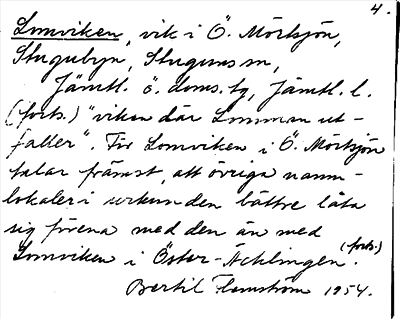 4.
Lomviken, vik i Ö. Mörtsjön,
Stugubyn, Stuguns sn,
Jämtl. ö. doms. tg, Jämtl. l.
(forts.) "viken där Lomman ut-
faller". För Lomviken i Ö. Mörtsjön
talar främst, att övriga namn-
lokaler i urkunden bättre låta
sig förena med den än med
Lomviken i Öster-Äcklingen. (forts.)
Bertil Flemström 1954.